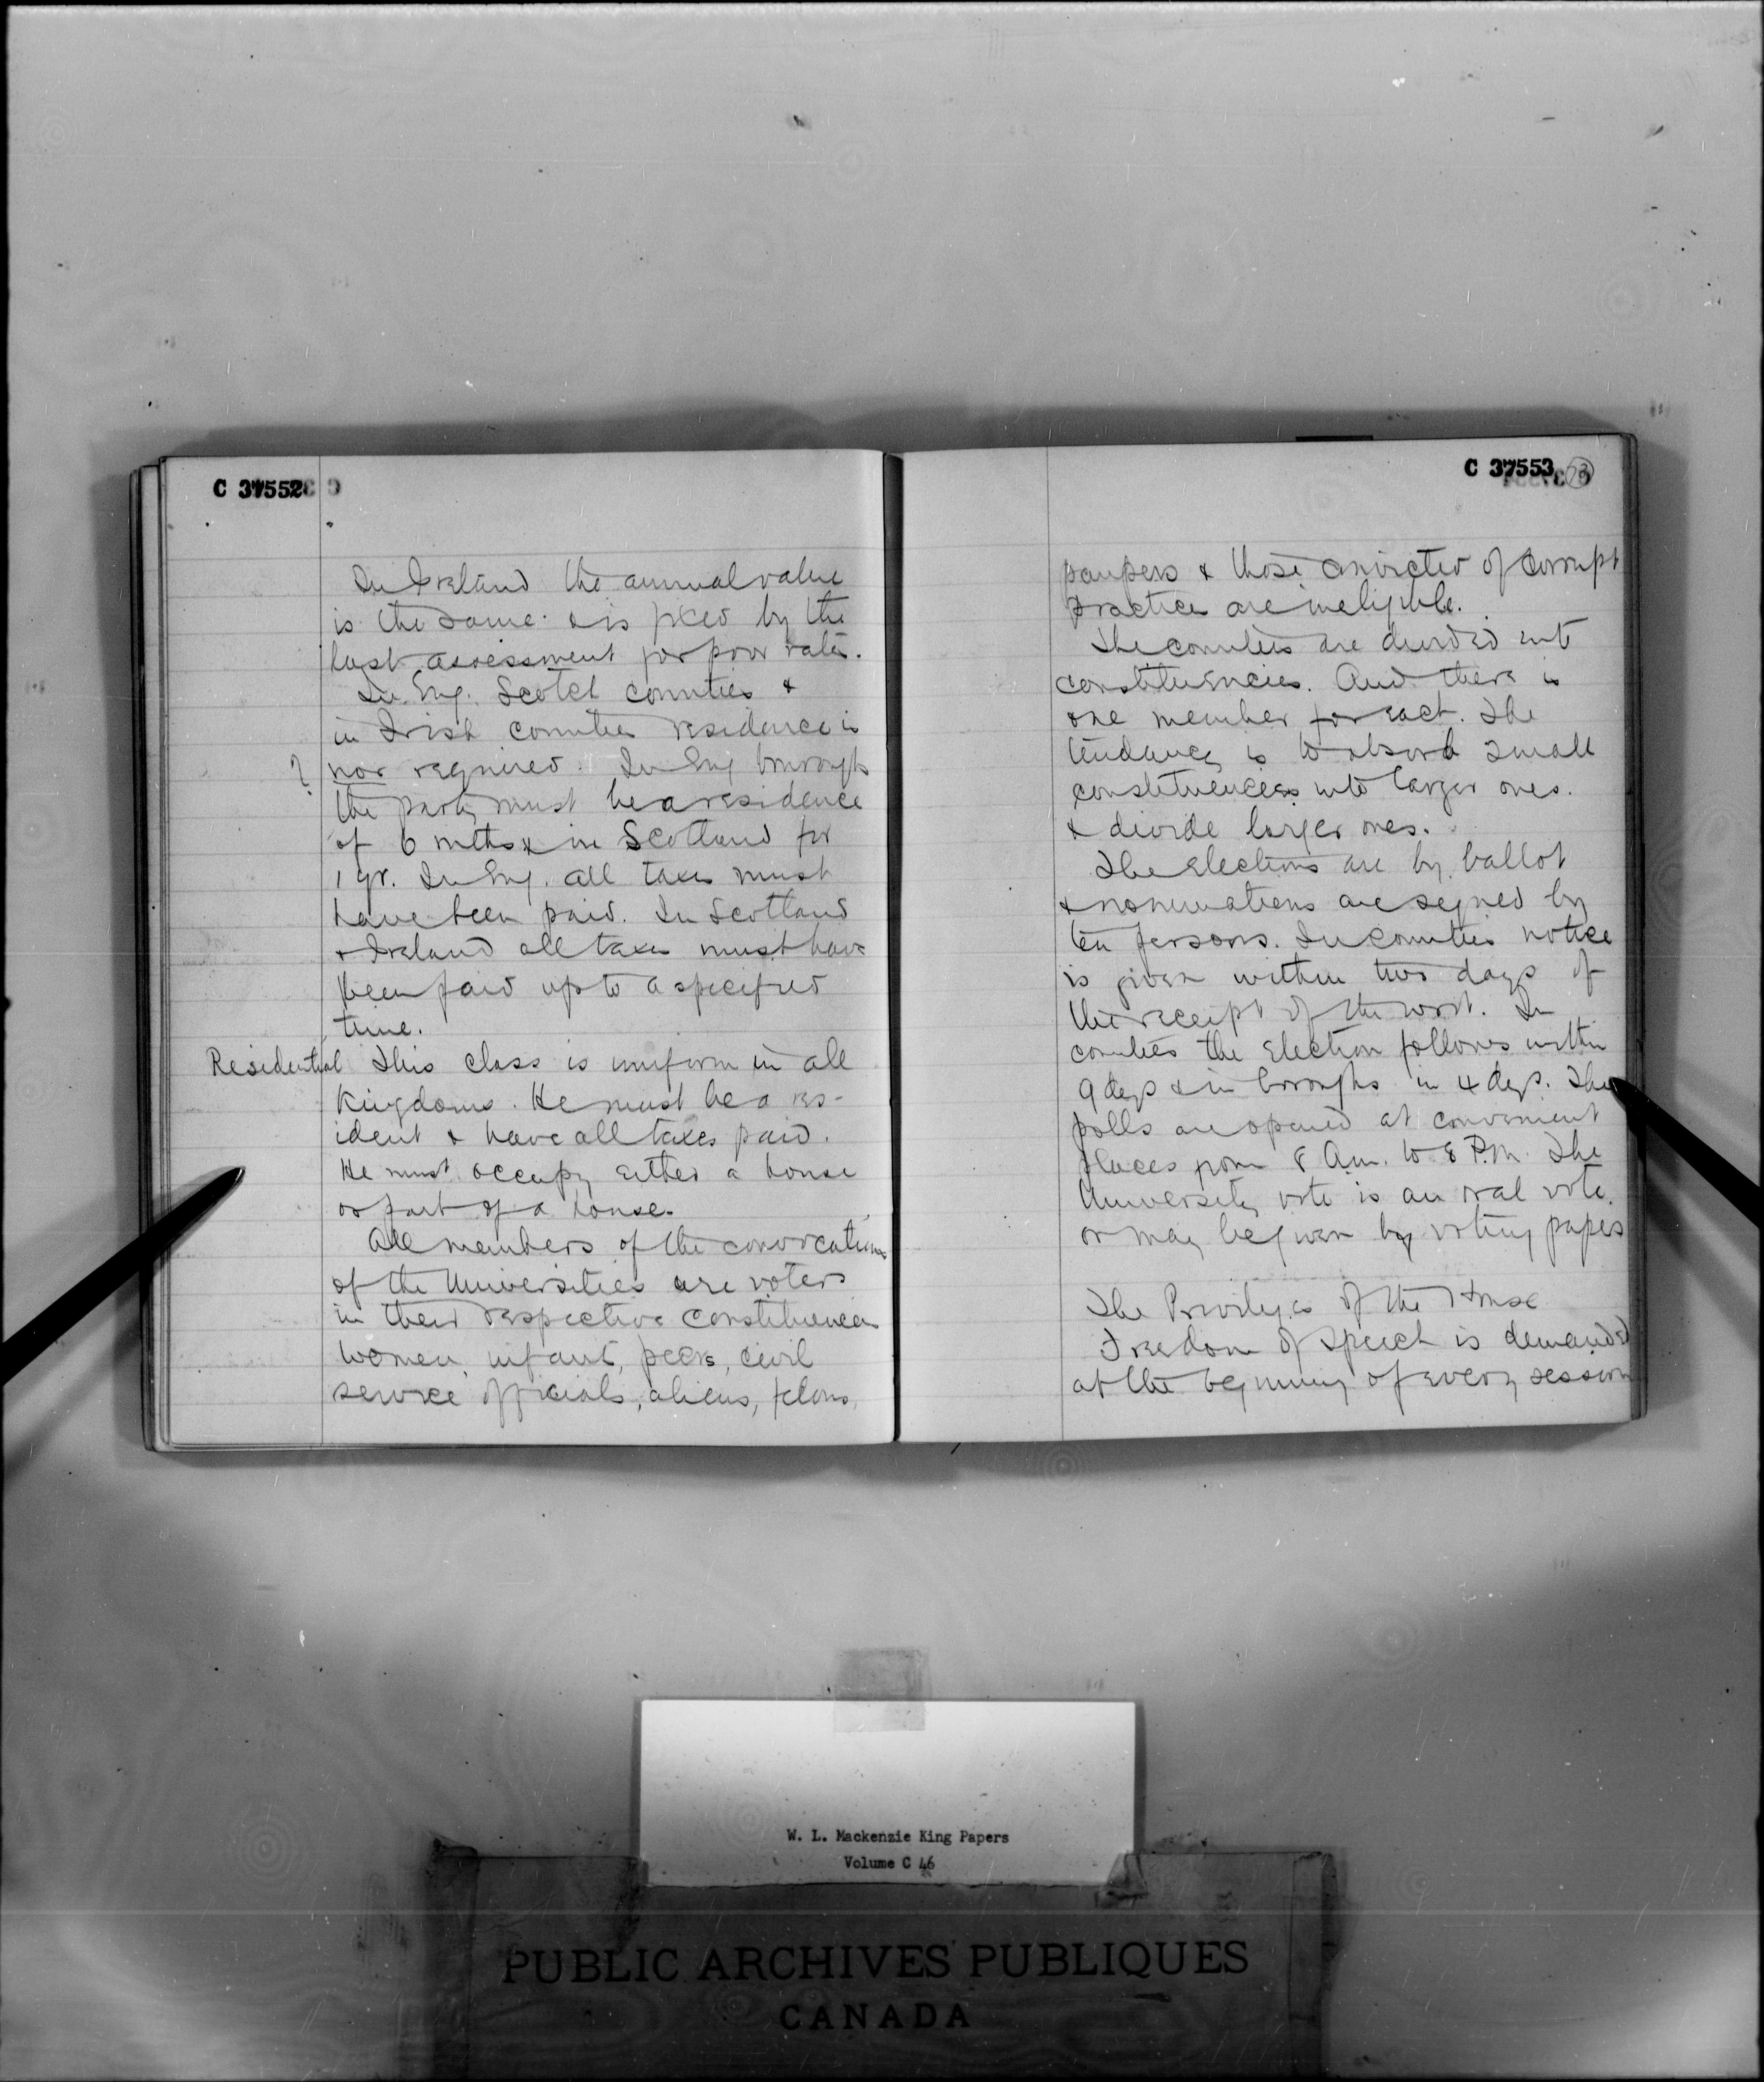 C 37552
In Ireland the annual value
is the same & is fixed by the
last assessment for poor rates.
In Eng. Scotch counties &
in Irish counties residence is
? nor required. In Eng burroughs
the party must be a residence
of 6 mths & in Scotland for
1 yr. In Eng. all taxes must
have been paid. In Scotland
& Ireland all taxes must have
been paid up to a specified
time.
Residential This class is uniform in all
Kingdoms. He must be a res-
ident & have all taxes paid.
He must occupy either a house
or part of a house.
All members of the convocations
of the Universities are voters
in their respective constituencies
Women, infants, peers, civil
service officials, aliens, felons,
C 37553
paupers & those convicted of corrupt
practices are ineligible.
The counties are divided into
constituencies. And there is
one member for each. The
tendency is to absorb small
constituencies into larger ones.
& divide larger ones.
The elections are by ballot
& nominations are signed by
ten persons. In counties notice
is given within two days of
the receipt of the writ. In
counties the election follows within
9 days & in boroughs in 4 days. The
polls are opened at convenient
places from 8 A.m. to 8 P.M. The
University vote is an oral vote.
or may be given by voting papers
The Privileges of the House
Freedom of speech is demanded
at the beginning of every session
W. L. Mackenzie King Papers
Volume C 46
PUBLIC ARCHIVES PUBLIQUES
CANADA